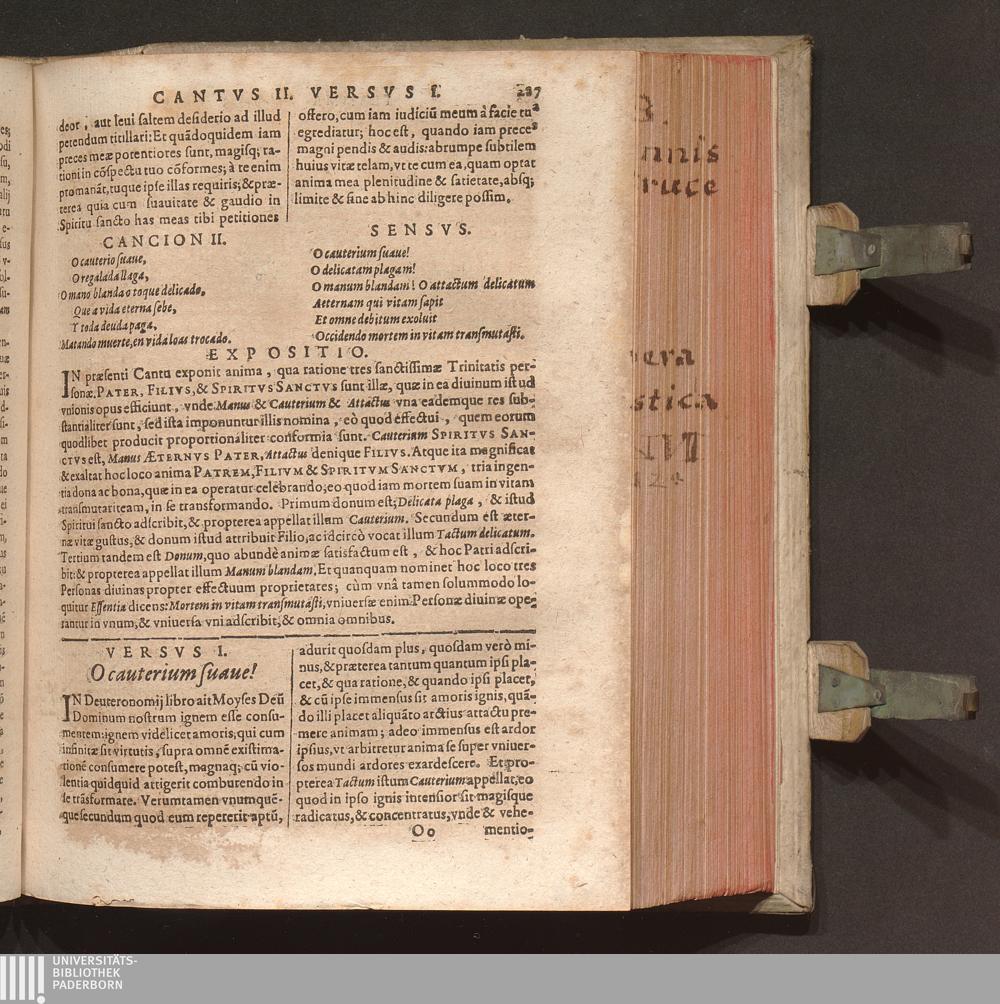 CANTVS II. VERSVS I. 287
deor, aut leui saltem desiderio ad illud
petendum titillari: Et quãdoquidem iam
preces meæ potentiores sunt, magisq; ra-
tioni in cõspectu tuo cõformes; à te enim
promanãt, tuque ipse illas requiris; & præ-
terea quia cum suauitate & gaudio in
Spiritu sancto has meas tibi petitiones
offero, cum iam iudiciũ meum à facie tua
egrediatur; hoc est, quando iam preces
magni pendis & audis: abrumpe subtilem
huius vitæ telam, vt te cum ea, quam optat
anima mea plenitudine & satietate, absq;
limite & fine ab hinc diligere possim.
CANCION II.
O cauterio suaue,
O regalada llaga,
O mano blanda o toque delicado,
Que a vida eterna sebe,
Y toda deuda paga,
Matando muerte, en vida loas trocado.
SENSVS.
O cauterium suaue!
O delicatam plagam!
O manum blandam! O attactum delicatum
Aeternam qui vitam sapit
Et omne debitum exoluit
Occidendo mortem in vitam transmutasti.
EXPOSITIO.
IN præsenti Cantu exponit anima, qua ratione tres sanctissimæ Trinitatis per-
sonæ. PATER, FILIVS, & SPIRITVS SANCTVS sunt illæ, quæ in ea diuinum istud
vnionis opus efficiunt, vnde Manus & Cauterium & Attactus vna eademque res sub-
stantialiter sunt, sed ista imponuntur illis nomina, eò quod effectui, quem eorum
quodlibet producit proportionaliter conformia sunt. Cauterium SPIRITVS SAN-
CTVS est, Manus ÆTERNVS PATER, Attactus denique FILIVS. Atque ita magnificat
& exaltat hoc loco anima PATREM, FILIVM & SPIRITVM SANCTVM, tria ingen-
tia dona ac bona, quæ in ea operatur celebrando; eo quod iam mortem suam in vitam
transmutarit eam, in se transformando. Primum donum est; Delicata plaga, & istud
Spiritui sancto adscribit, & propterea appellat illum Cauterium. Secundum est æter-
næ vitæ gustus, & donum istud attribuit Filio, ac idcircò vocat illum Tactum delicatum.
Tertium tandem est Donum, quo abundè animæ satisfactum est, & hoc Patri adscri-
bit: & propterea appellat illum Manum blandam. Et quanquam nominet hoc loco tres
Personas diuinas propter effectuum proprietates; cùm vnâ tamen solummodo lo-
quitur Essentia dicens: Mortem in vitam transmutasti, vniuersæ enim Personæ diuinæ ope-
rantur in vnum, & vniuersa vni adscribit, & omnia omnibus.
VERSVS I.
O cauterium suaue!
IN Deuteronomij libro ait Moyses Deũ
Dominum nostrum ignem esse consu-
mentem: ignem videlicet amoris, qui cum
infinitæ sit virtutis, supra omnẽ existima-
tionẽ consumere potest, magnaq; cũ vio-
lentia quidquid attigerit comburendo in
se trãsformare. Verumtamen vnumquẽ-
que secundum quod eum repererit aptũ,
adurit quosdam plus, quosdam verò mi-
nus, & præterea tantum quantum ipsi pla-
cet, & qua ratione, & quando ipsi placet,
& cũ ipse immensus sit amoris ignis, quã-
do illi placet aliquãto arctius attactu pre-
mere animam; adeo immensus est ardor
ipsius, vt arbitretur anima se super vniuer-
sos mundi ardores exardescere. Et pro-
pterea Tactum istum Cauterium appellat, eo
quod in ipso ignis intensior sit magisque
radicatus, & concentratus, vnde & vehe-
Oo mentio-
B.
nnis
ruce
era
stica
UNIVERSITÄTS-
BIBLIOTHEK
PADERBORN